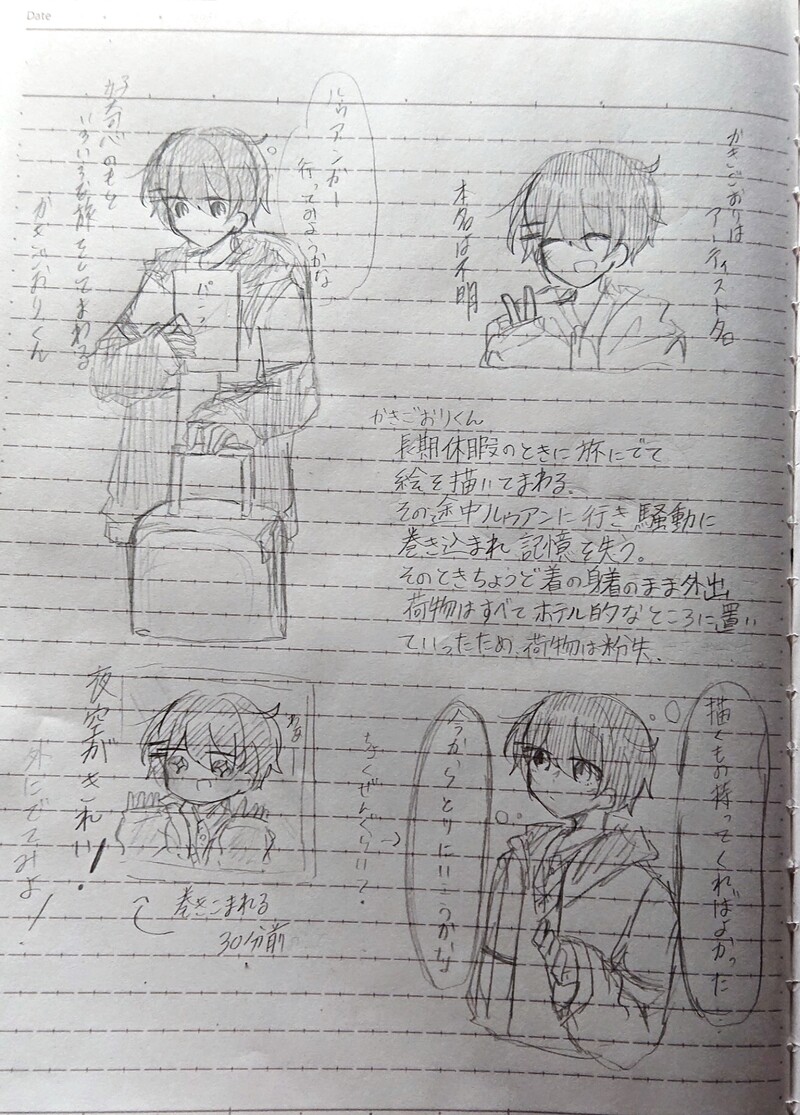 Date
かきごおりは
アーティスト名
本名は不明
ルゥアンかー
行ってみようかな
パンフ
好奇心のもと
いろいろな旅をしてまわる
かきごおりくん
かきごおりくん
長期休暇のときに旅にでて
絵を描いてまわる。
その途中ルゥアンに行き騒動に
巻き込まれ記憶を失う。
そのときちょうど着の身着のまま外出
荷物はすべてホテル的なところに置い
ていったため、荷物は粉失。
描くもの持ってくればよかった
今からとりにいこうかな
ちょくぜんぐらい?
わぁー
夜空がきれい!
外にでてみよ!
巻きこまれる
30分前